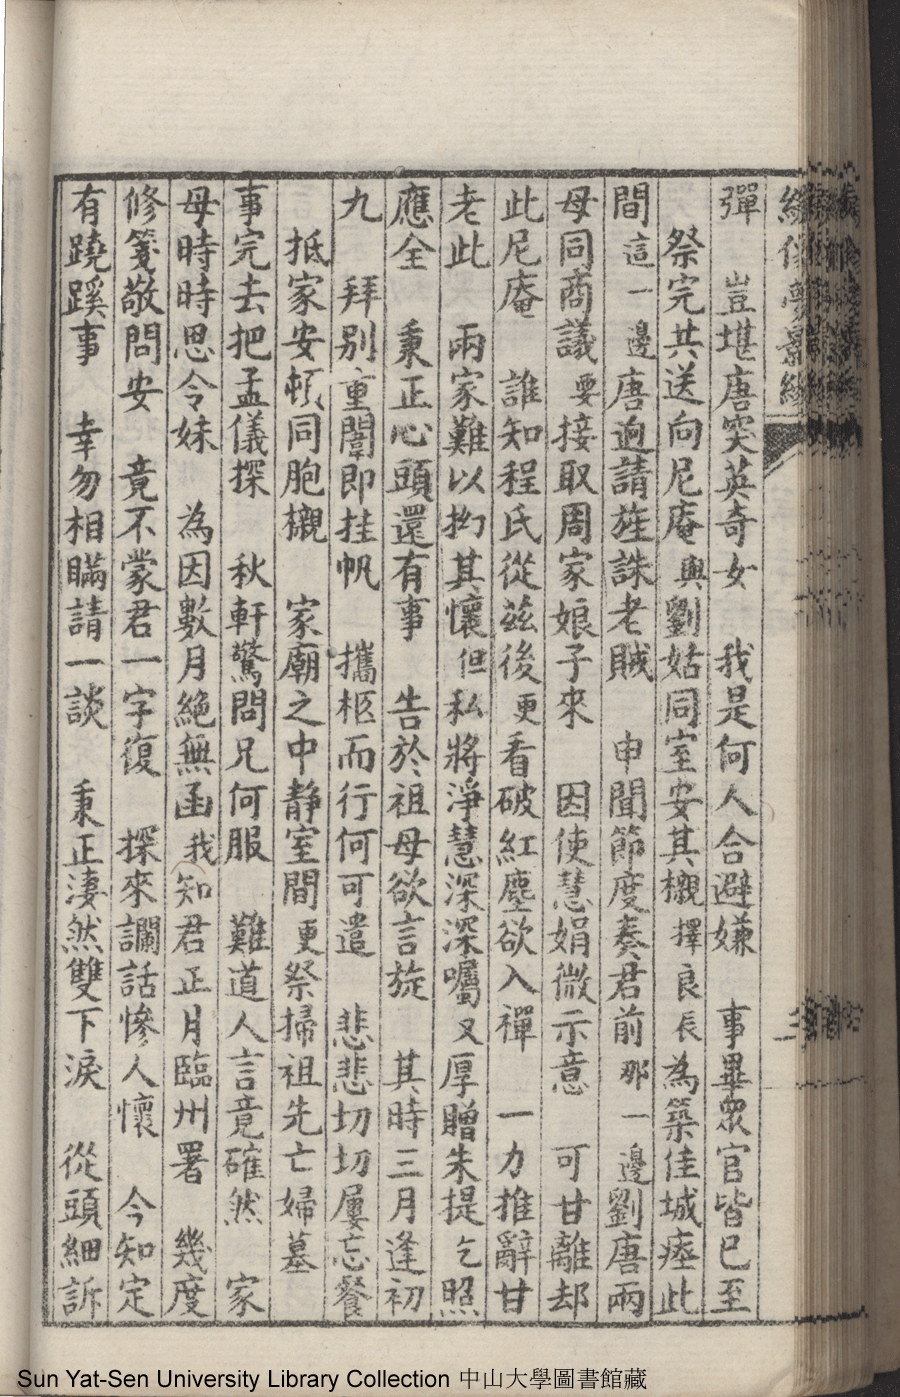 繡像夢影緣
彈 豈堪唐突英奇女 我是何人合避嫌 事畢眾官皆已至
祭完共送向尼庵與劉姑同室安其櫬擇良辰為築佳城瘞此
間這一邊唐逈請旌誅老賊 申聞節度奏君前那一邊劉唐兩
母同商議要接取周家娘子來 因使慧娟微示意 可甘離却
此尼庵 誰知程氏從茲後更看破紅塵欲入禪 一力推辭甘
老此 兩家難以拗其懷但私將淨慧深深囑又厚贈朱提乞照
應全 秉正心頭還有事 告於祖母欲言旋 其時三月逢初
九 拜別重闈即挂帆 攜柩而行何可遣 悲悲切切屢忘餐
抵家安頓同胞櫬 家廟之中靜室間更祭掃祖先亡婦墓
事完去把孟儀探 秋軒驚問兄何服 難道人言竟確然 家
母時時思令妹 為因數月絕無函我知君正月臨州署 幾度
修箋敬問安 竟不蒙君一字復 探來讕話慘人懷 今知定
有蹺蹊事 幸勿相瞞請一談 秉正淒然雙下淚 從頭細訴
Sun Yat-Sen University Library Collection 中山大學圖書館藏